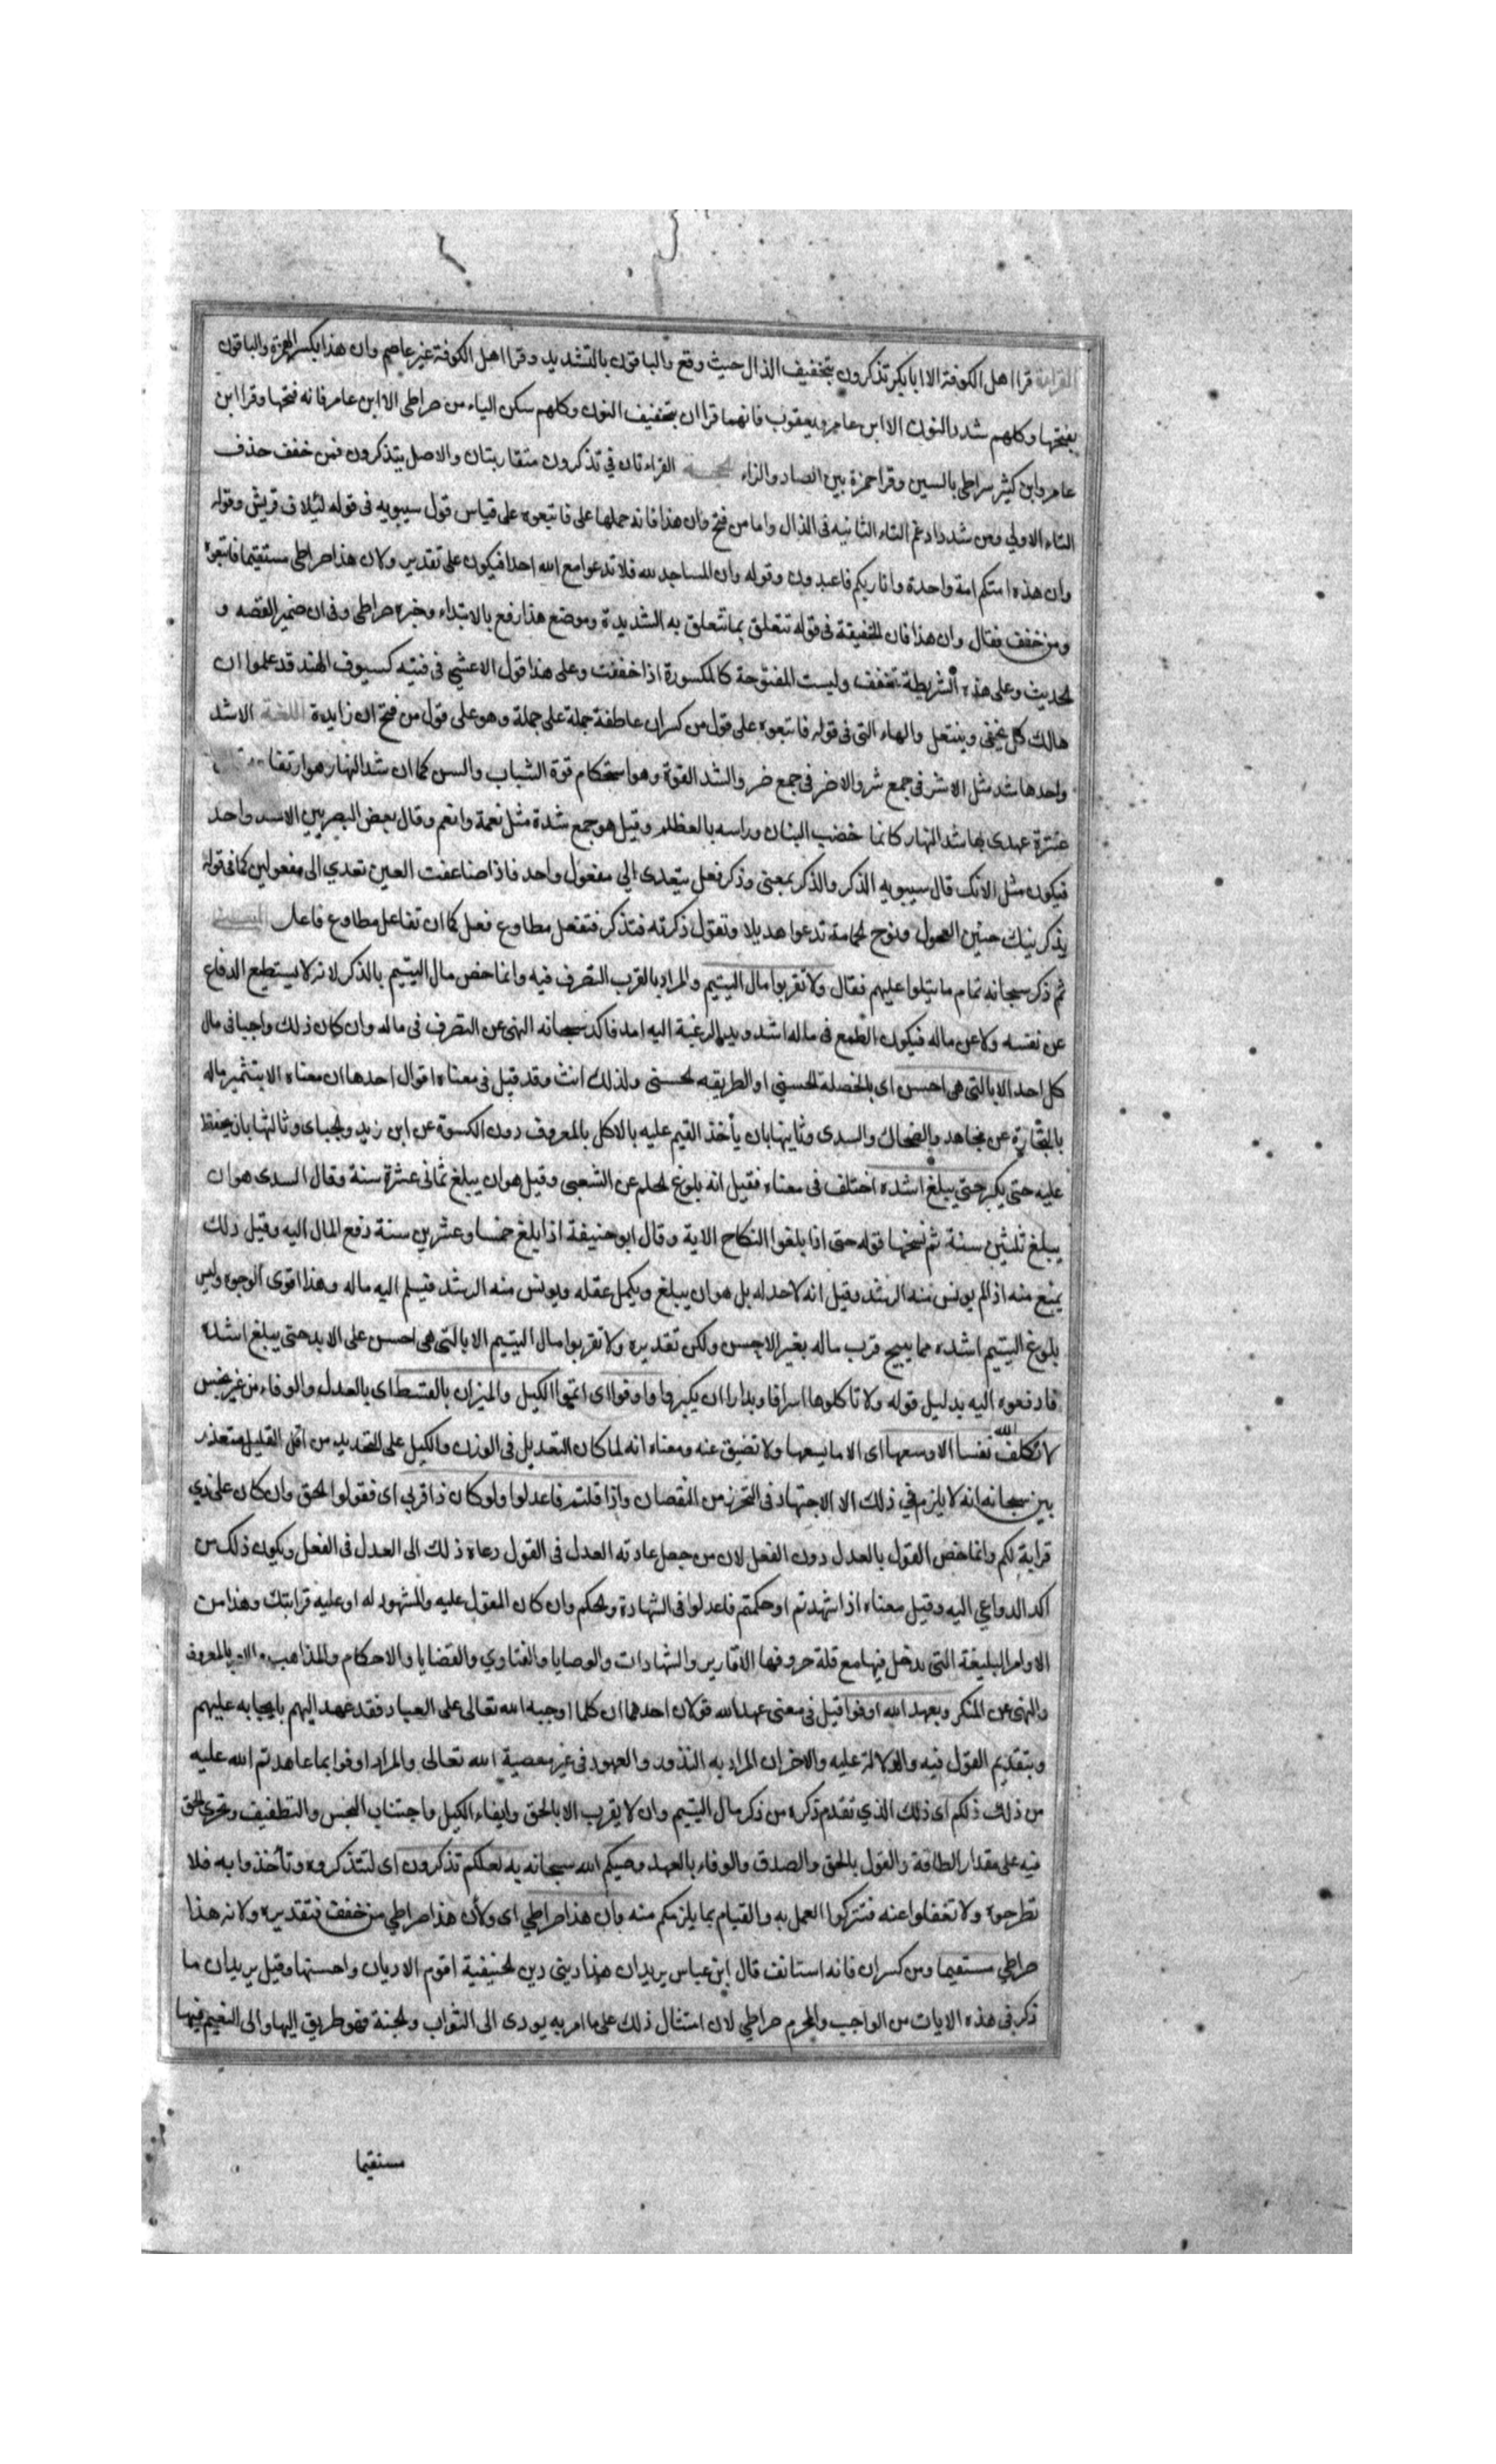 القراءة قرا اهل الكوفة الا ابا بكر تذكرون بتخفيف الذال حيث وقع والباقون بالتشديد وقرا اهل الكوفة غير عاصم وان هذا بكسر الهمزة والباقون
بفتحها وكلهم شدد النون الا ابن عامر ويعقوب فانهما قراان بتخفيف النون وكلهم سكن الياء من صراطى الا ابن عامر فانه فتحها وقرا ابن
عامر وابن كثير سراطى بالسين وقرا حمزة بين الصاد والزاء الحجة القراءتان فى تذكرون متقاربتان والاصل يتذكرون فمن خفف حذف
التاء الاولى ومن شدد ادغم التاء الثانيه فى الذال واما من فتح وان هذا فانه حملها على فاتبعوه على قياس قول سيبويه فى قوله لئيلاف قريش وقوله
وان هذه امتكم امة واحدة وانا ربكم فاعبدون وقوله وان المساجد لله فلا تدعوا مع الله احدا فيكون على تقدير ولان هذا صراطى مستقيما فاتبعوه
ومن خفف فقال وان هذا فان الخفيفة فى قوله تتعلق بما تتعلق به الشديدة وموضع هذا رفع بالابتداء وخبره صراطى وفى ان ضمير القصه و
الحديث وعلى هذه الشريطة تخفف وليست المفتوحة كالمكسورة اذا خففت وعلى هذا قول الاعشى فى فتيه كسيوف الهند قد علموا ان
هالك كل يخفى وينتعل والهاء التى فى قوله فاتبعوه على قول من كسر ان عاطفة جملة على جملة وهو على قول من فتح ان زايدة اللغة الاشد
واحدها شد مثل الاشر فى جمع شر والاضر فى جمع ضر والشد القوة وهو استحكام قوة الشباب والسن كما ان شد النهار هو ارتفا
عنترة عهدى بها شد النهار كانما خضب البنان وراسه بالعظلم وقيل هو جمع شدة مثل نعمة وانعم وقال بعض البصريين الاشد واحد
فيكون مثل الانك قال سيبويه الذكر والذكر بمعنى وذكر فعل يتعدى الى مفعول واحد فاذا ضاعفت العين تعدي الى مفعولين كما فى قوله
يذكرنيك حنين العجول ونوح الحمامة تدعوا هديلا وتقول ذكرته فتذكر فتفعل مطاوع فعل كما ان تفاعل مطاوع فاعل المعنى
ثم ذكر سبحانه تمام ما يتلوا عليهم فقال ولا تقربوا مال اليتيم والمراد بالقرب التصرف فيه وانما خص مال اليتيم بالذكر لانه لا يستطيع الدفاع
عن نفسه ولا عن ماله فيكون الطمع فى ماله اشد ويد الرغبة اليه امد فاكد سبحانه النهى عن التصرف فى ماله وان كان ذلك واجبا فى مال
كل احد الا بالتى هى احسن اى بالخصلة الحسنى او الطريقه الحسنى ولذلك انث وقد قيل فى معناه اقوال احدها ان معناه الا بتثمير ماله
بالتجارة عن مجاهد والضحاك والسدى وثانيها بان يأخذ القيم عليه بالاكل بالمعروف دون الكسوة عن ابن زيد والجباى وثالثها بان يحفظ
عليه حتى يكبر حتى يبلغ اشده اختلف فى معناه فقيل انه بلوغ الحلم عن الشعبى وقيل هو ان يبلغ ثمانى عشرة سنة وقال السدى هو ان
يبلغ ثلثين سنة ثم نسخها قوله حتى اذا بلغوا النكاح الاية وقال ابو حنيفة اذا بلغ خمسا وعشرين سنة دفع المال اليه وقبل ذلك
يمنع منه اذا لم يونس منه الرشد وقيل انه لا حد له بل هو ان يبلغ ويكمل عقله ويونس منه الرشد فيسلم اليه ماله وهذا اقوى الوجوه وليس
بلوغ اليتيم اشده مما يبيح قرب ماله بغير الاحسن ولكن تقديره ولا تقربوا مال اليتيم الا بالتى هى احسن على الابد حتى يبلغ اشده
فادفعوه اليه بدليل قوله ولا تاكلوها اسرافا وبدارا ان يكبروا واوفوا اى اتموا الكيل والميزان بالقسط اى بالعدل والوفاء من غير بخس
لا نكلف الله نفسا الا وسعها اى الا ما يسعها ولا تضيق عنه ومعناه انه لما كان التعديل فى الوزن والكيل على التحديد من اقل القليل متعذر
بين سبحانه انه لا يلزم في ذلك الا الاجتهاد فى التحرز من النقصان واذا قلتم فاعدلوا ولو كان ذا قربي اى فقولوا الحق وان كان على ذي
قرابة لكم وانما خص القول بالعدل دون الفعل لان من جعل عادته العدل فى القول دعاه ذلك الى العدل فى الفعل ويكون ذلك من
اكد الدواعي اليه وقيل معناه اذا شهدتم او حكمتم فاعدلوا فى الشهادة والحكم وان كان المقول عليه والمشهود له او عليه قرابتك وهذا من
الاوامر البليغة التى يدخل فيها مع قلة حروفها الاقارير والشهادات والوصايا والفتاوي والقضايا والاحكام والمذاهب والامر بالمعروف
والنهى عن المنكر وبعهد الله اوفوا قيل فى معنى عهد الله قولان احدهما ان كلما اوجبه الله تعالى على العباد فقد عهد اليهم بايجابه عليهم
وبتقديم القول فيه والدلالة عليه والاخر ان المراد به النذور والعهود فى غير معصية الله تعالى والمراد اوفوا بما عاهدتم الله عليه
من ذلك ذلكم اى ذلك الذي تقدم ذكره من ذكر مال اليتيم وان لا يقرب الا بالحق وايفاء الكيل واجتناب البخس والتطفيف وتحري الحق
فيه على مقدار الطاقة والقول بالحق والصدق والوفاء بالعهد وصيكم الله سبحانه به لعلكم تذكرون اى لتتذكروه وتأخذوا به فلا
تطرحوه ولا تغفلوا عنه فتتركوا العمل به والقيام بما يلزمكم منه وان هذا صراطي اى ولأن هذا صراطي من خفف فتقديره ولانه هذا
صراطي مستقيما ومن كسر ان فانه استانف قال ابن عباس يريد ان هذا دينى دين الحنيفية اقوم الاديان واحسنها وقيل يريد ان ما
ذكر فى هذه الايات من الواجب والمحرم صراطي لان امتثال ذلك على ما امر به يودى الى الثواب والجنة فهو طريق اليها والى النعيم فيها
مستقيما